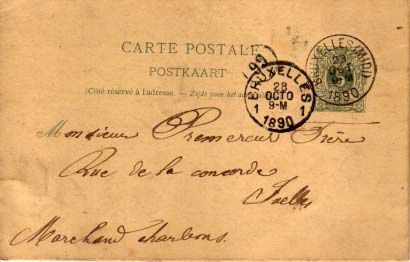 CARTE POSTALE
POSTKAART
(Côté réservé à l'adresse. — Zijde voor het
BRUXELLES (MIDI)
28
1890
BRUXELLES
28
OCTO
9-M
1 1
1890
Monsieur Premereur Frère
Rue de la concorde
Ixelles
Marchand charbons.